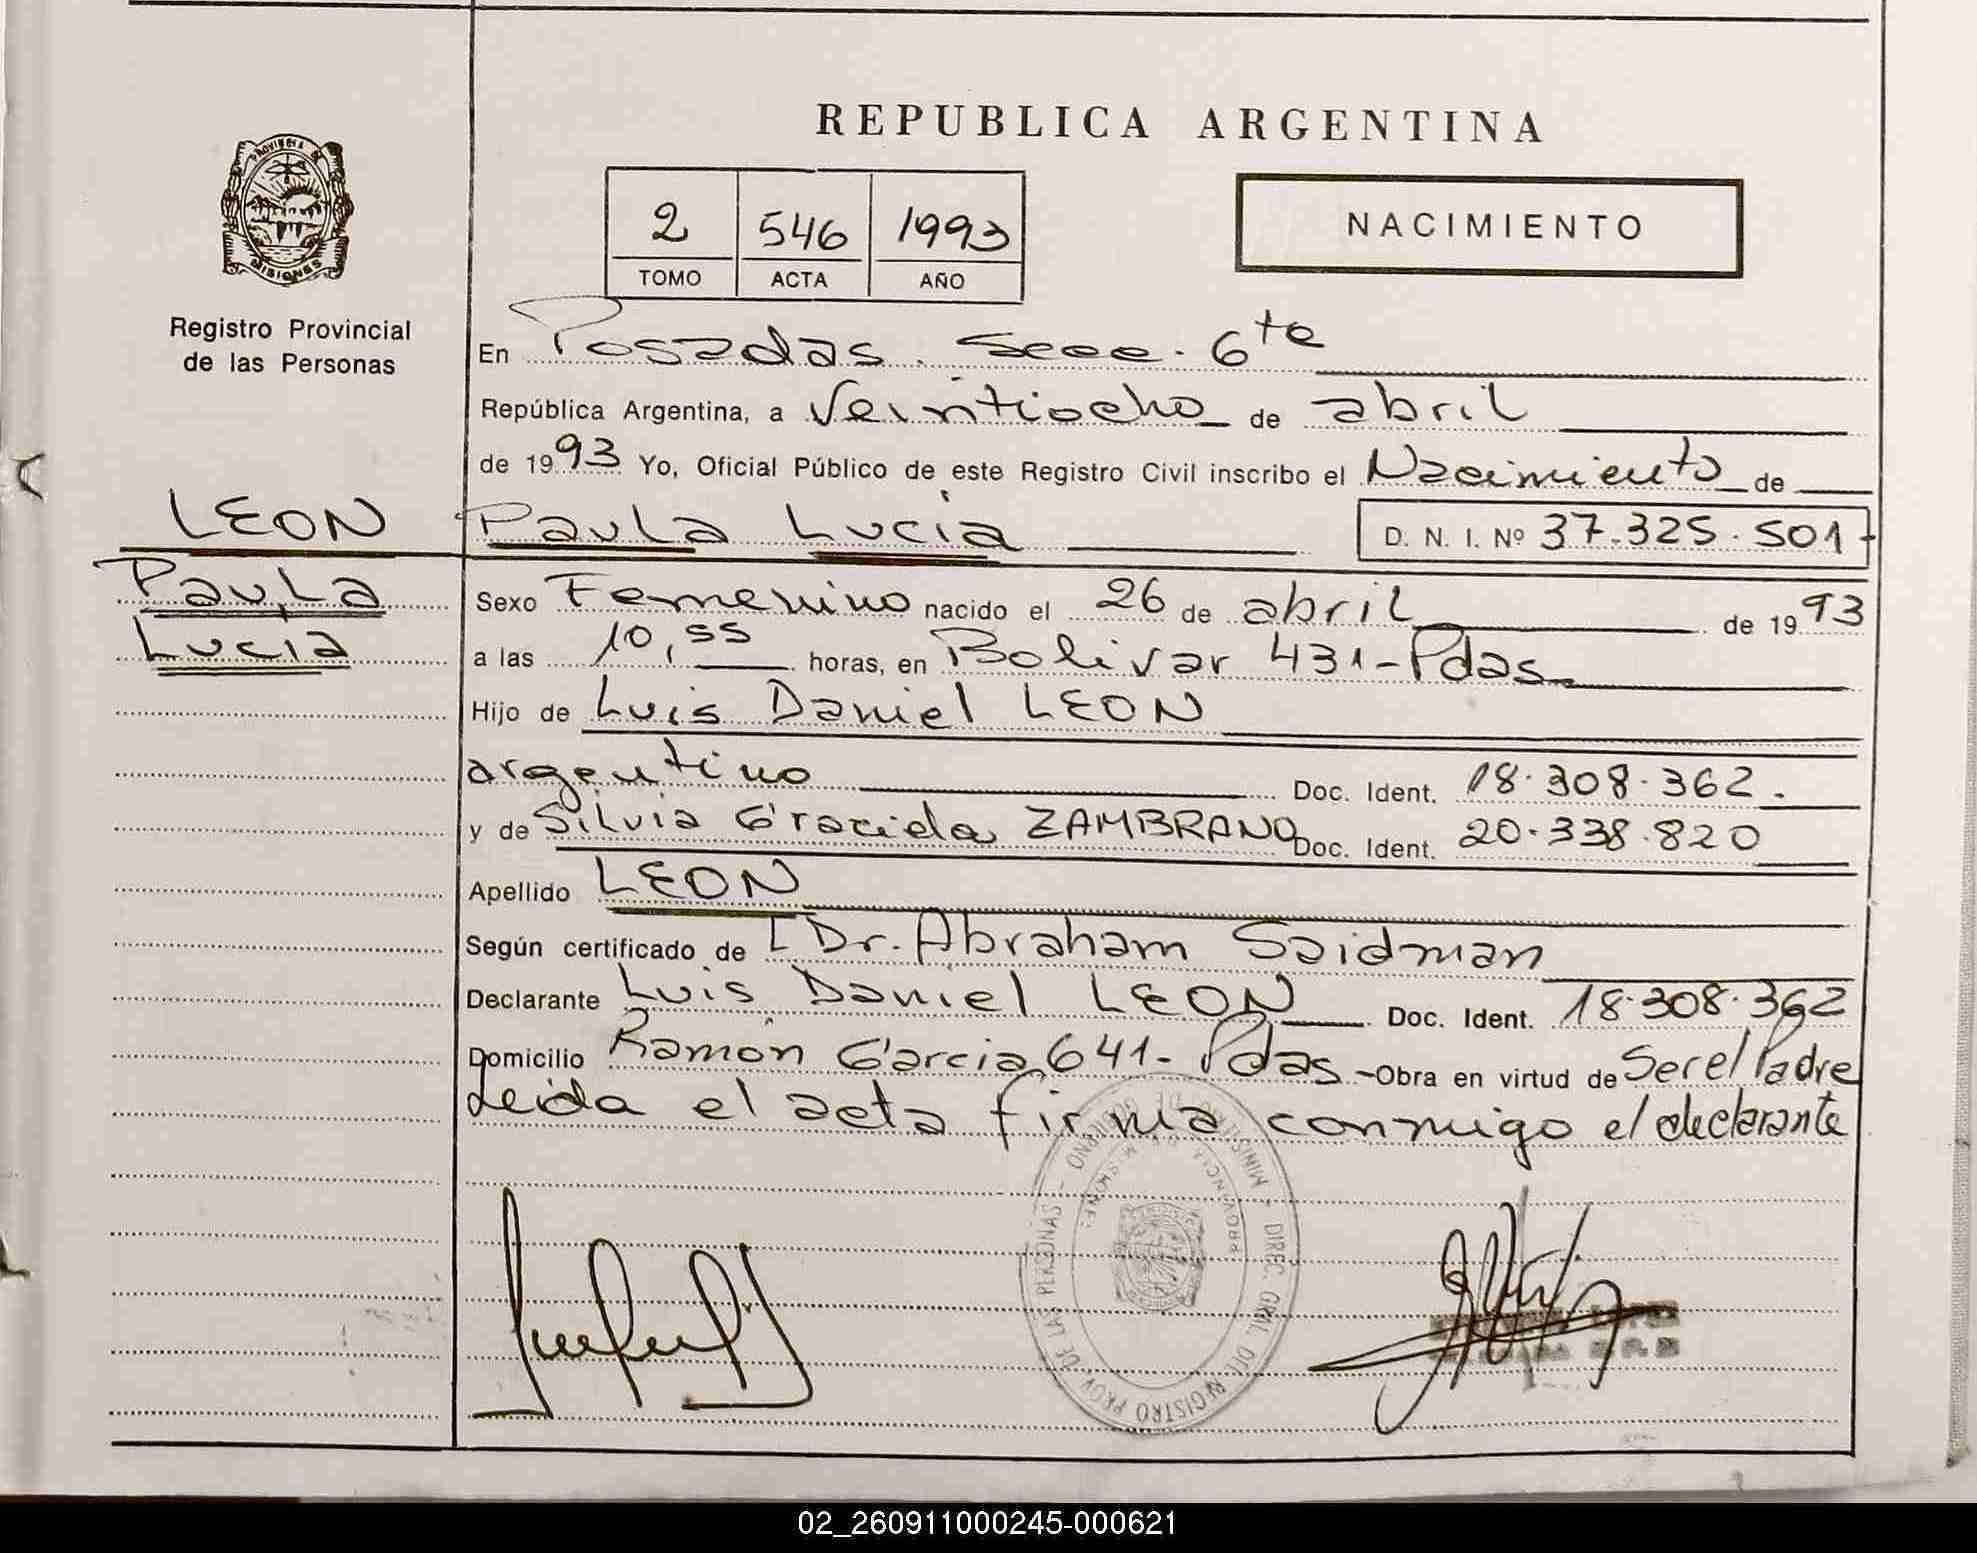 REPUBLICA ARGENTINA
PROVINCIA DE
MISIONES
Registro Provincial
de las Personas
2 546 1993
TOMO ACTA AÑO
NACIMIENTO
En Posadas. Secc. 6ta
República Argentina, a Veintiocho de abril
de 1993 Yo, Oficial Público de este Registro Civil inscribo el Nacimiento de
LEON
Paula
Lucia
Paula Lucia D. N. I. Nº 37.325.501
Sexo Femenino nacido el 26 de abril de 1993
a las 10,55 horas, en Bolivar 431-Pdas
Hijo de Luis Daniel LEON
argentino Doc. Ident. 18.308.362.
y de Silvia Graciela ZAMBRANO Doc. Ident. 20.338.820
Apellido LEON
Según certificado de Dr. Abraham Saidman
Declarante Luis Daniel LEON Doc. Ident. 18.308.362
Domicilio Ramón Garcia 641- Pdas -Obra en virtud de Ser el Padre
Leida el acta firma conmigo el declarante
MINISTERIO DE GOBIERNO - DIREC. GRAL. DEL REGISTRO PROV. DE LAS PERSONAS -
PROVINCIA MISIONES
02_260911000245-000621